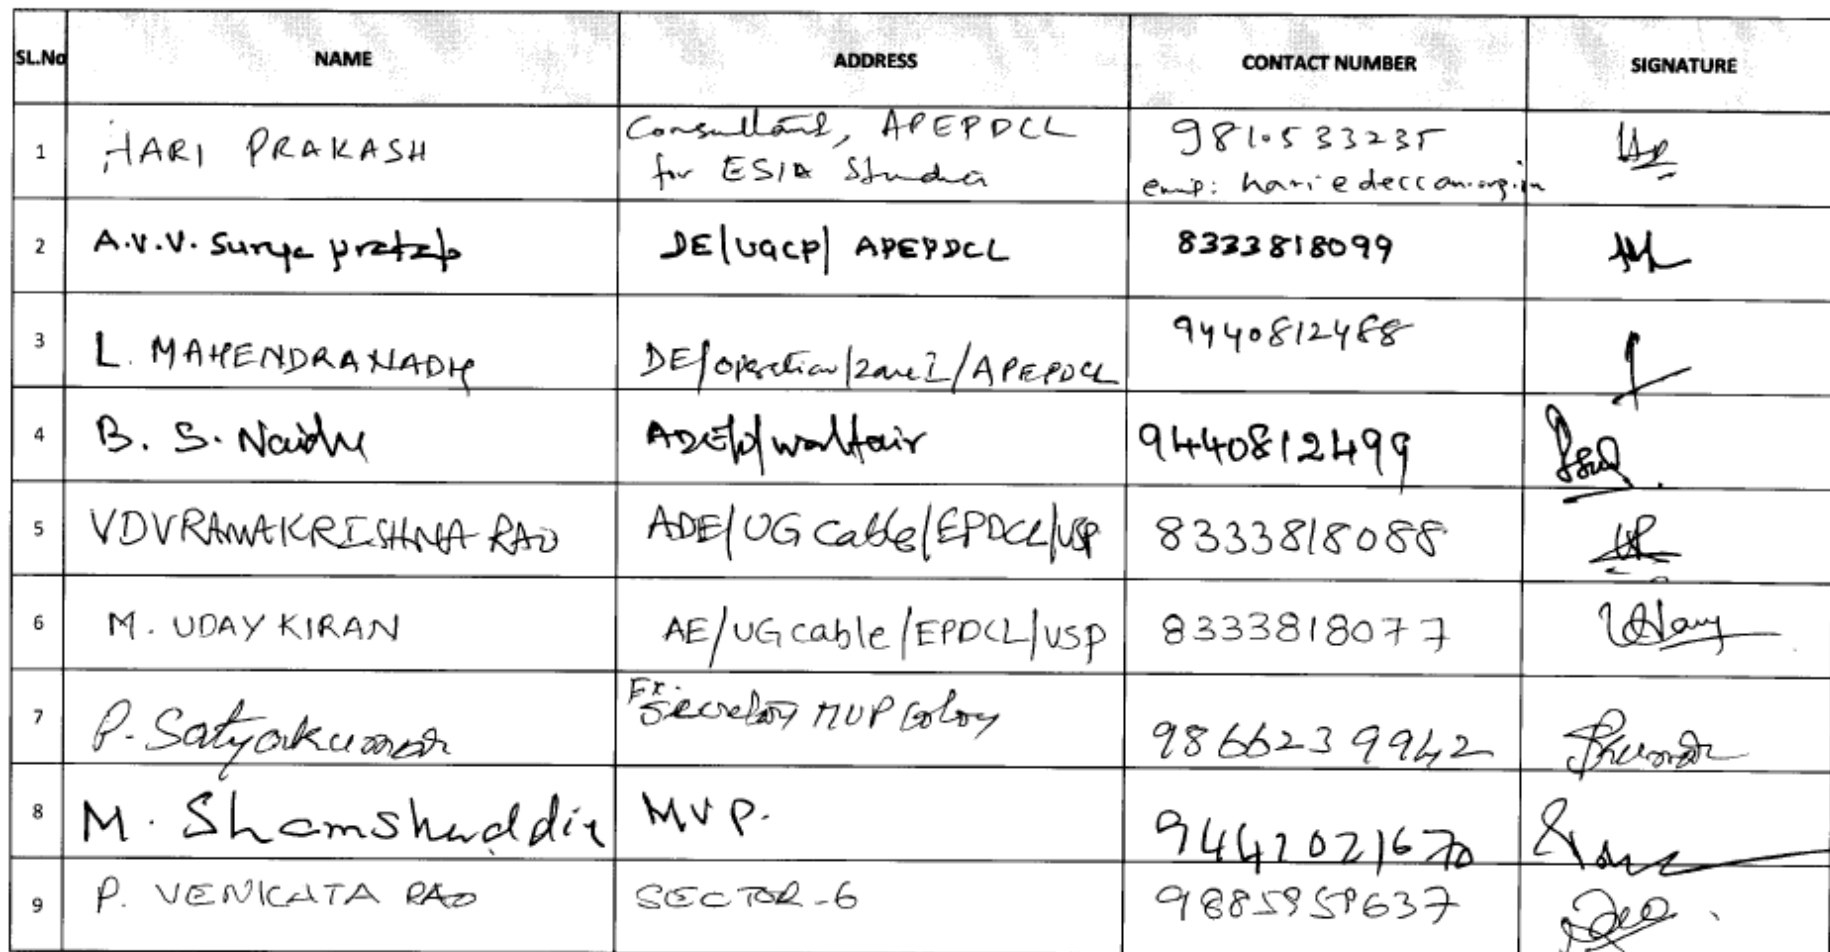 SL.No NAME ADDRESS CONTACT NUMBER SIGNATURE
1 HARI PRAKASH Consultant, APEPDCL 9810533235
for ESIA Studies
2 A.V.V. Surya pratap DE/UGCP/ APEPDCL 8333818099
3 L. MAHENDRANADH DE/operation/zone I/APEPDCL 9440812488
4 B. S. Naidu ADE/O/waltair 9440812499
5 VDVRAMAKRISHNA RAO ADE/UG Cable/EPDCL/VSP 8333818088
6 M. UDAY KIRAN AE/UG cable/EPDCL/VSP 8333818077
7 P. Satyakumar Ex. Secretary MVP Colony 9866239942
8 M. Shamshuddin MVP.
9 P. VENKATA RAO SECTOR-6